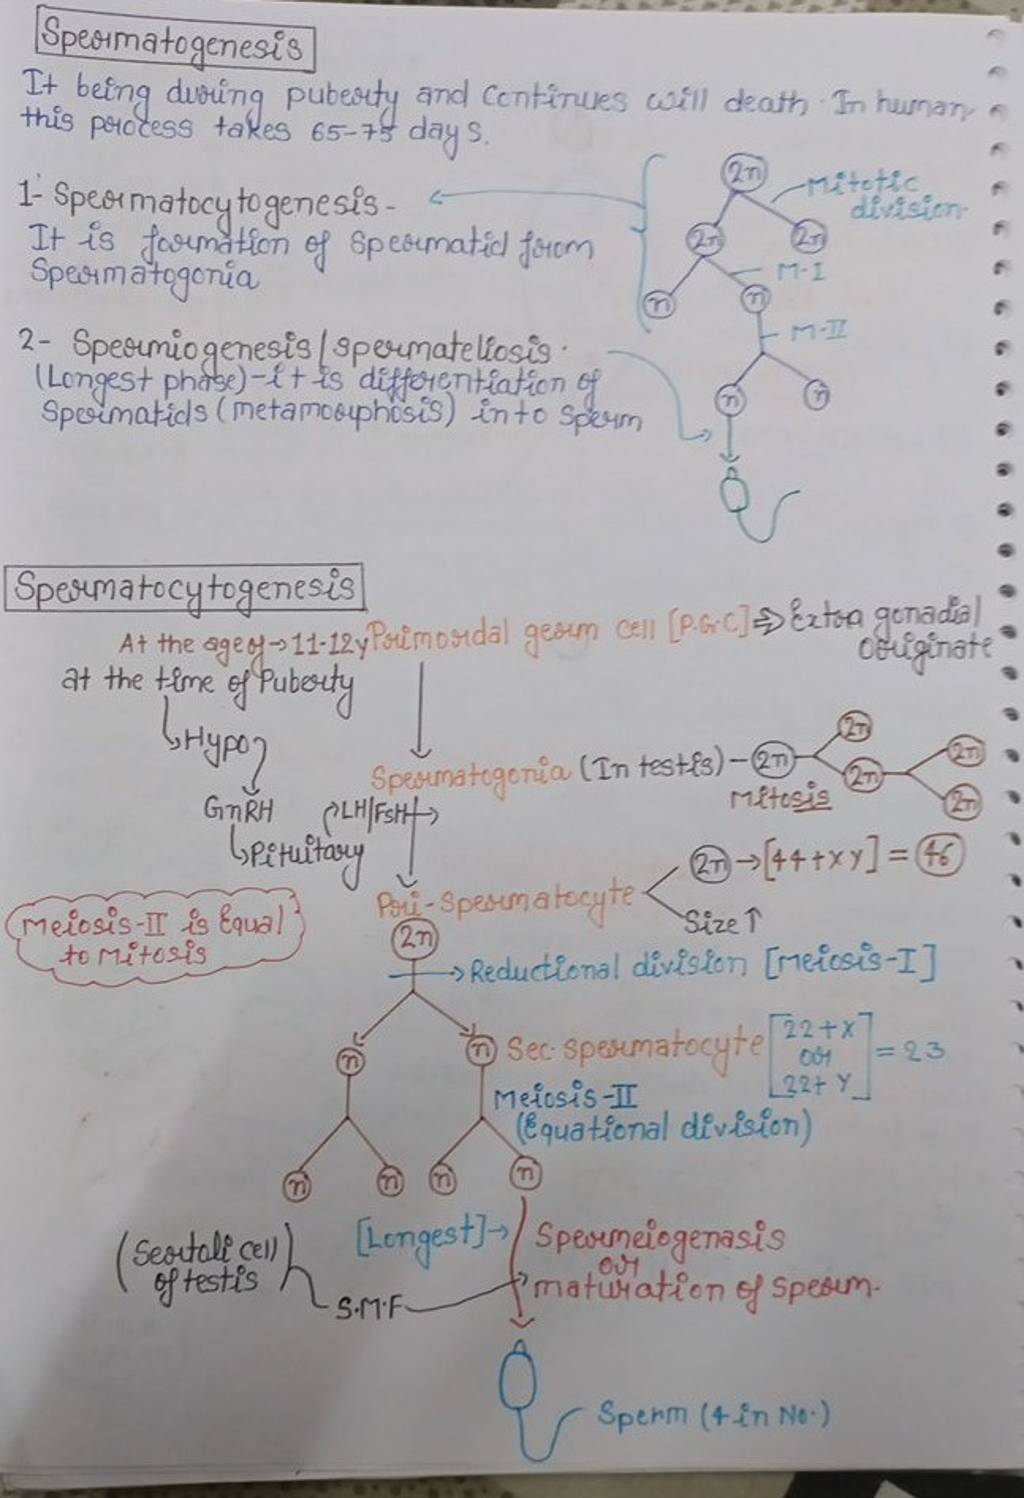 Spermatogenesis
It being during puberty and continues will death. In human
this process takes 65-75 days.
1- Spermatocytogenesis-
It is formation of spermatid form
Spermatogonia
2n
Mitotic
division
2n
2n
M-I
n
n
M-II
n
n
2- Spermiogenesis/spermateliosis.
(Longest phase)-it is differentiation of
Spermatids (metamorphosis) into sperm
Spermatocytogenesis
At the age of → 11-12y Primordal germ cell [P.G.C] ⇒ Extra gonadial
originate
at the time of Puberty
↳Hypo
GnRH
↳Pituitary
LH/FSH→
Spermatogonia (In testis) - 2n
Mitosis
2n
2n
2n
2n
Pri-spermatocyte
2n → [44+XY] = 46
Size ↑
Meiosis-II is Equal
to Mitosis
2n
→ Reductional division [Meiosis-I]
n
n
Sec. spermatocyte [22+X or 22+Y] = 23
Meiosis-II
(Equational division)
n
n
n
n
(Sertali cell
of testis)
S.M.F
[Longest]→
Spermeiogenasis
or
maturation of sperm.
Sperm (4 in No.)